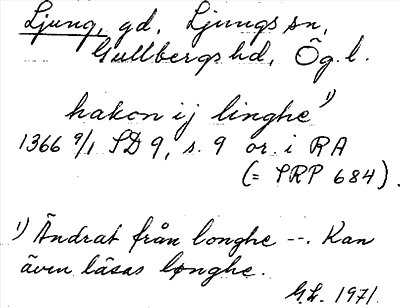 Ljung, gd, Ljungs sn,
Gullbergs hd, Ög.l.
hakon ij linghe 1)
1366 9/1 SD 9, s. 9 or. i RA
(= SRP 684).
1) Ändrat från longhe --. Kan
även läsas lønghe.
G.L. 1971